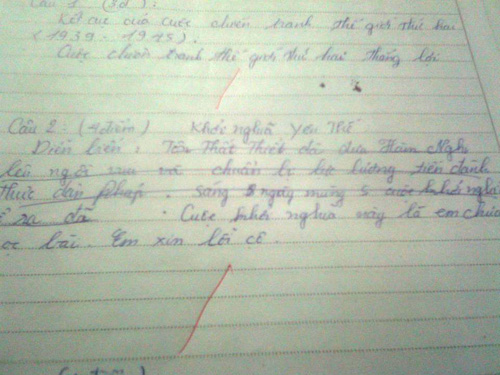 Câu 1: (3đ):
Kết cục của cuộc chiến tranh thế giới thứ hai
(1939 - 1945):
Cuộc chiến tranh thế giới thứ hai thắng lợi
Câu 2: (4điểm) Khởi nghĩa Yên Thế
Diễn biến: Tôn Thất Thuyết đã đưa Hàm Nghi
lên ngôi vua và chuẩn bị lực lượng tiến đánh
thực dân Pháp. sáng 5 ngày mùng 5 cuộc khởi nghĩa
ổ ra đã. Cuộc khởi nghĩa này là em chưa
ọc bài. Em xin lỗi cô.